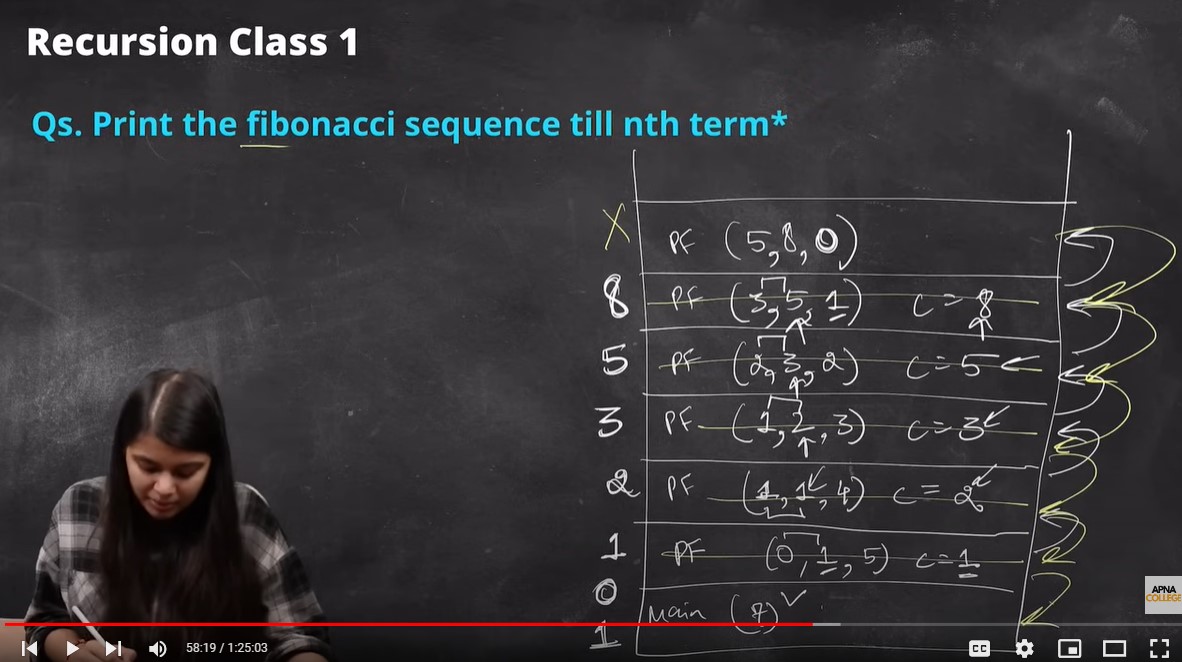 Recursion Class 1
Qs. Print the fibonacci sequence till nth term*
X PF (5,8,0)
8 PF (3,5,1) c=8
5 PF (2,3,2) c=5
3 PF (1,2,3) c=3
2 PF (1,1,4) c=2
1 PF (0,1,5) c=1
0 Main (7)
1
APNA
COLLEGE
58:19 / 1:25:03
CC